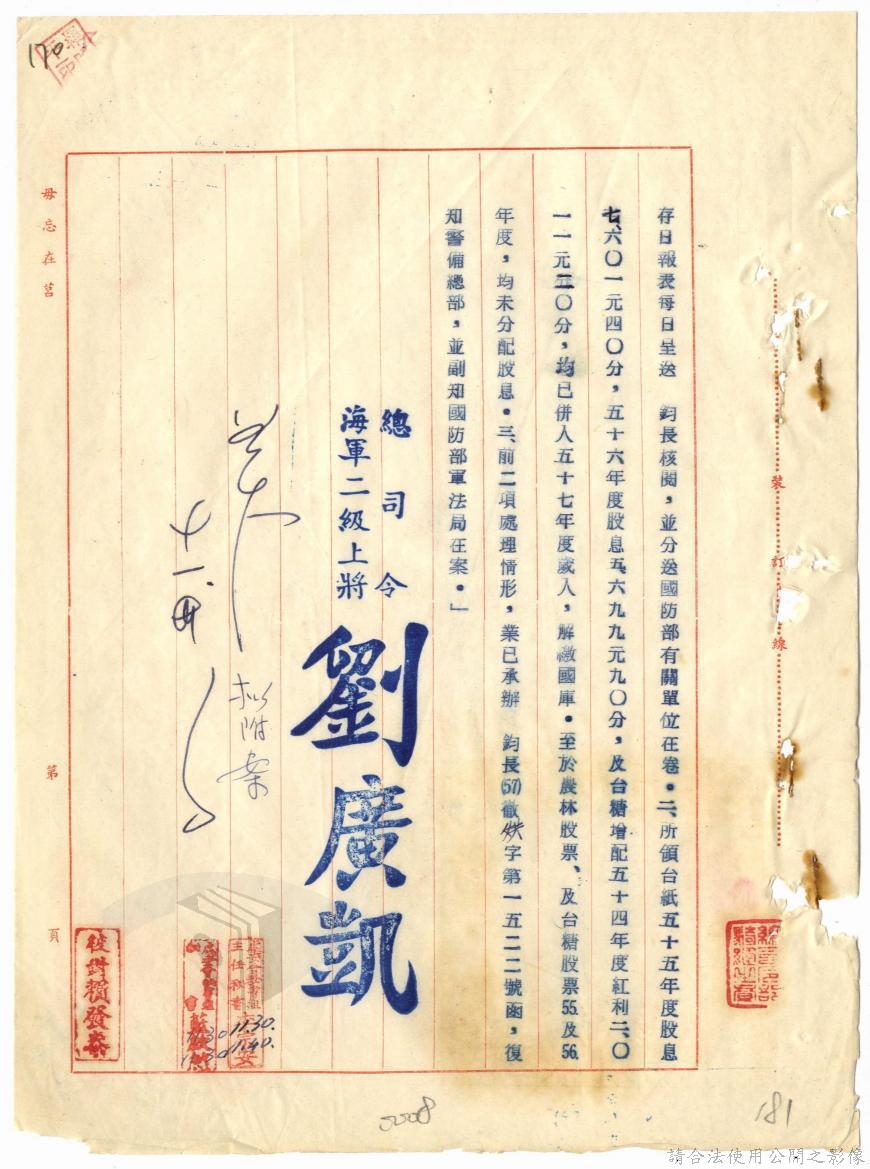 存日報表每日呈送　鈞長核閱，並分送國防部有關單位在卷。二、所領台紙五十五年度股息
七、六〇一元四〇分，五十六年度股息五、六九九元九〇分，及台糖增配五十四年度紅利二、〇
一一元二〇分，均已併入五十七年度歲入，解繳國庫。至於農林股票、及台糖股票55.及56.
年度，均未分配股息。三、前二項處理情形，業已承辦　鈞長(57)徹字第一五二二號函，復
知警備總部，並副知國防部軍法局在案。」
總司令
海軍二級上將
劉廣凱
擬附案
十一
毋忘在莒
第
頁
裝
訂
線
校對賴發泰
主任秘書
11.30.
11.40.
170
181
請合法使用公開之影像